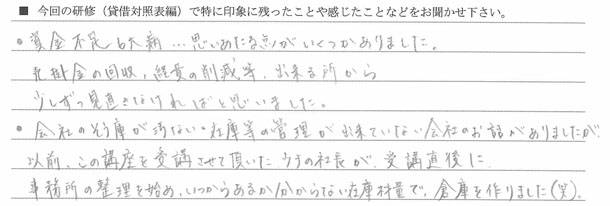 ■ 今回の研修（貸借対照表編）で特に印象に残ったことや感じたことなどをお聞かせ下さい。
• 資金不足6大病…思いあたる点がいくつかありました。
売掛金の回収，経費の削減等，出来る所から
少しずつ見直さなければと思いました。
• 会社のそう庫が汚ない・在庫等の管理が出来ていない会社のお話がありましたが
以前，この講座を受講させて頂いたうちの社長が，受講直後に
事務所の整理を始め，いつからあるか分からない在庫材量で，倉庫を作りました（笑）．